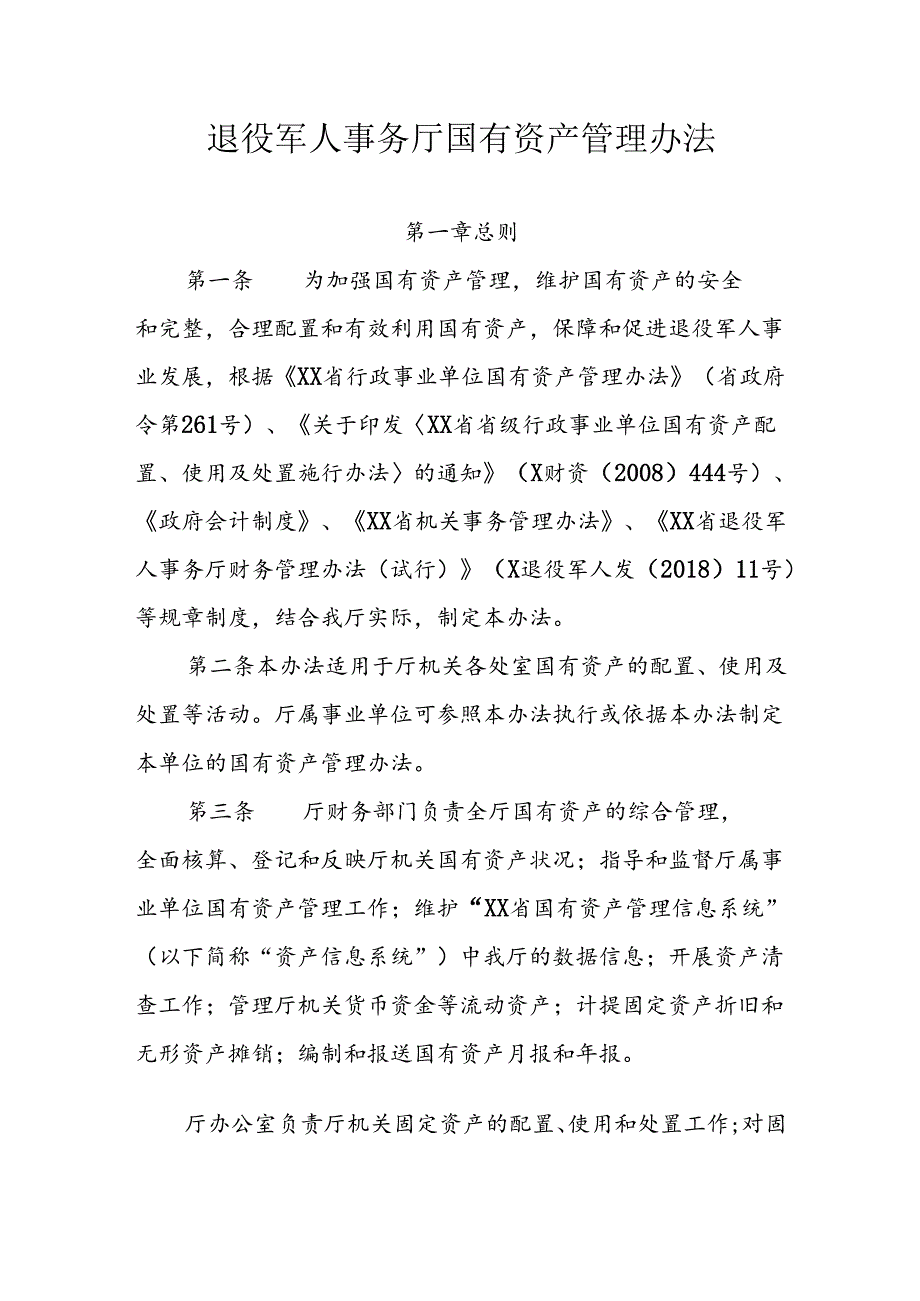 退役军人事务厅国有资产管理办法
第一章总则
第一条 为加强国有资产管理，维护国有资产的安全
和完整，合理配置和有效利用国有资产，保障和促进退役军人事
业发展，根据《XX省行政事业单位国有资产管理办法》（省政府
令第261号）、《关于印发〈XX省省级行政事业单位国有资产配
置、使用及处置施行办法〉的通知》（X财资（2008）444号）、
《政府会计制度》、《XX省机关事务管理办法》、《XX省退役军
人事务厅财务管理办法（试行）》（X退役军人发（2018）11号）
等规章制度，结合我厅实际，制定本办法。
第二条本办法适用于厅机关各处室国有资产的配置、使用及
处置等活动。厅属事业单位可参照本办法执行或依据本办法制定
本单位的国有资产管理办法。
第三条 厅财务部门负责全厅国有资产的综合管理，
全面核算、登记和反映厅机关国有资产状况；指导和监督厅属事
业单位国有资产管理工作；维护“XX省国有资产管理信息系统”
（以下简称“资产信息系统”）中我厅的数据信息；开展资产清
查工作；管理厅机关货币资金等流动资产；计提固定资产折旧和
无形资产摊销；编制和报送国有资产月报和年报。
厅办公室负责厅机关固定资产的配置、使用和处置工作;对固